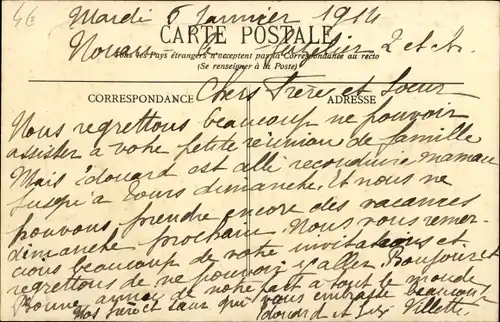 4E
Mardi 6 Janvier 1914
CARTE POSTALE
Nouan-le-Fuzelier L et Ch.
Tous les Pays étrangers n'acceptent pas la Correspondance au recto
(Se renseigner à la Poste)
CORRESPONDANCE ADRESSE
Chers Frère et Soeur
Nous regrettons beaucoup ne pouvoir
assister à votre petite réunion de famille
Mais Edouard est allé reconduire maman
jusqu'à Tours dimanche. Et nous ne
pouvons prendre encore des vacances
dimanche prochain. Nous vous remer-
cions beaucoup de votre invitations et
regrettons de ne pouvoir y aller. Bonjour et
Bonne année de notre part à tout le monde
Nos frère et soeur qui vous embrasse beaucoup
Edouard et Villette